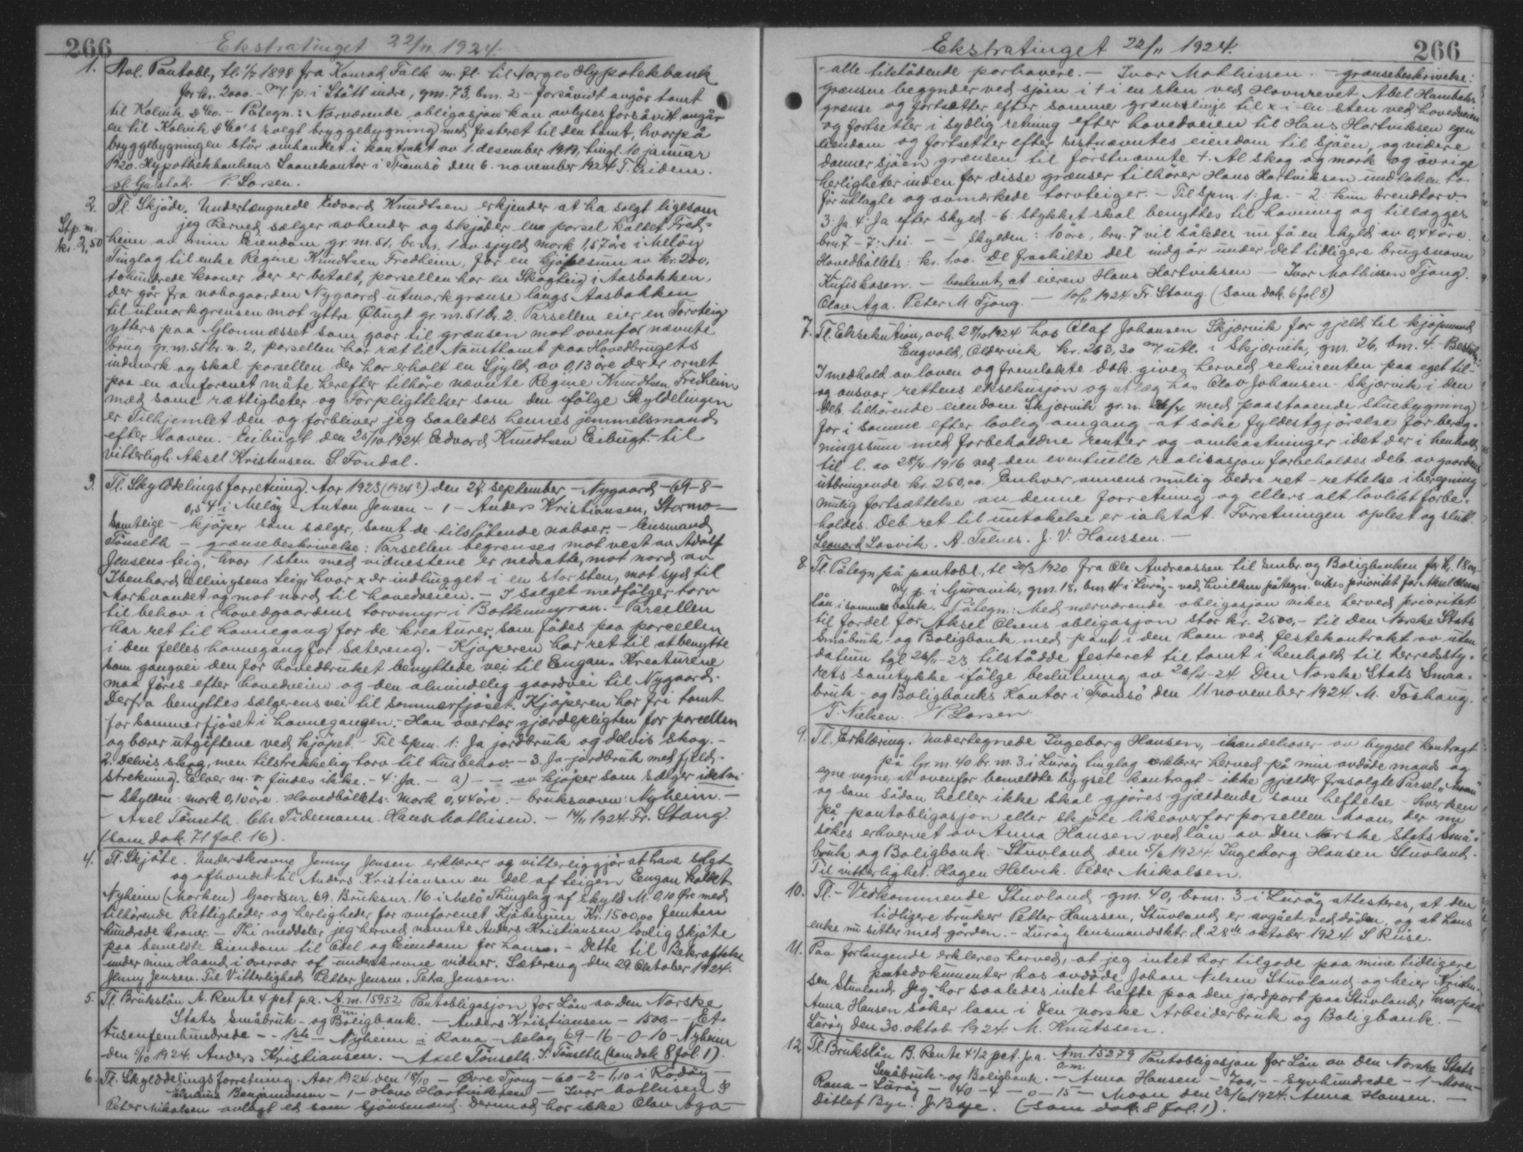 266 Ekstratinget 22/11 1924.
1. Avl. Pantobl., tl. 1/7 1898 fra Konrad Falk m. fl. til Norges Hypotekbank
for kr. 2000.- m/ p. i Støtt indre, gm. 73, bm. 2 - forsåvidt angår tomt
til Kolvik & Co. Påtegn.: Nærværende obligasjon kan avlyses forsåvidt angår
en til Kolvik & Co's solgt bryggebygning med festeret til den tomt, hvorpå
bryggebygningen står omhandlet i kontrakt av 1. desember 1919, tingl. 10 januar
1920. Hypothekbankens Laanekontor i Tromsö den 6. november 1924 T. Eidem.
P. Larsen.
2. Tl. Skjöde. Undertegnede Edvard Knudtsen erkjender at ha solgt ligesom
Stp. m. jeg herved sælger avhender og skjøder en parsel kaldet Fred-
kr. 2,50 heim av min Eiendom gr. m. 51. br. m. 1 av skyld mork 1,57 öre i Melöy
Tinglag til enke Regine Knudtsen Fredheim, for en kjøpesum av kr. 200.
tohundrede kroner der er betalt, porsellen har en Skogteig i Aasbakken
der går fra nabogaarden Nygaard utmark grænse langs Aasbakken
til utmorkgrensen mot yttre Øbugt gr. m. 51 br. 2. Parsellen eier en Torvteig
ytters paa Glomnæsset som gaar til grænsen mot ovenfor nævnte
brug gr. m. 51 br. n. 2, porsellen har ræt til Nausttomt paa Hovedbrugets
indmork og skal porsellen der har erholt en Skyld av 0,13 öre der er ornet
paa en omforenet måte herefter tilhöre nævnte Regine Knudtsen Fredheim
med same rættigheter og Forpligtelser som den ifölge Skyldelingen
er Tilhjemlet den og forbliver jeg saaledes hennes jemmelsmand
efter Loaven. Eibugt den 25/10 1924 Edvard Knudtsen Eibugt- til
vitterligh. Aksel Kristensen S. Fondal.
3. Tl. Skylddelingsforretning. Aar 1923 (1924?) den 27 september - Nygaard - 69 - 8 -
0,54 i Melöy - Anton Jensen - 1 - Anders Kristiansen, Stormo-
Samteige - kjøper som sælger, samt de tilstötende naboer. - lensmand
Tönseth - grænsebeskrivelse: Parsellen begrenses mot vest av Adolf
Jensens teig, hvor 1 sten med vidnestene er nedsatte, mot nord av
Ibenhard Ellingsens teig, hvor x er indhugget i en stor sten, mot syd til
torvvandet og mot nord til hovedveien. - I salget medfølger torv
til behov i hovedgaardens torvmyr i Botnmyran. - Parsellen
har ret til havnegang for de kreaturer, som födes paa porcellen
i den felles havnegang for Sætereng. - Kjøperen har ret til at benytte
som gangvei den for hovedbruket benyttede vei til Engan. Kreaturene
maa föres efter hovedveien og den almindelig gaardsvei til Nygaard.
Derfra benyttes sælgerens vei til sommerfjøset. Kjøperen har fri tomt
for sommerfjöset i havnegangen. - Han overtar gjærdepligten for porcellen
og bærer utgiftene ved kjøpet. - Til spm. 1: Ja jordbruk og delvis skog. -
2. Delvis skog, men tilstrekkelig torv til husbehov. - 3. Ja jordbruk med fjeld-
strekning. Elver m. v. findes ikke. - 4. Ja. - a) - - av kjøper som sælger idet ni
- Skylden: mork 0,10 öre. Hovedbölets: mork 0,44 öre. - bruksnavn: Nyheim. -
- Axel Tönseth. Chr. Tidemann. Hans Mathisen. - 14/11 1924. Fr. Stang
(som dok. 71 fol. 16).
4. Tl. Skjöte. Underskrevne Jenny Jensen erklærer og vitterliggjør at have solgt
og afhændet til Anders Kristiansen en del af teigen Engan kaldet
Nyheim (Marken) Gaardsnr. 69. Bruksnr. 16 i Melö Thinglag af Skyld M. 0,10 Øre med
tilhörende Rettigheder og herligheder for omforenet Kjöbesum Kr. 1500,00 femten
hundrede kroner. - Thi meddeler jeg herved nævnte Anders Kristiansen lovlig skjøte
paa bemeldte Eiendom til Odel og Eiendom for ham. - Dette til Bekræftelse
under min Haand i overvær af underskrevne vidner. Sætereng den 29 Oktober 1924.
Jenny Jensen. Til Vitterlighed: Petter Jensen. Petra Jensen.
5. Tl. Brukslån A. Rente 4 pct p.a. A.m. 15952 Pantobligasjon for Lån av Den Norske
Stats Småbruk- og Boligbank. - Anders Kristiansen - 1500,- - Et-
tusenfemhundrede - 1ste - Nyheim - Rana - Meløy 69-16-0-10 - Nyheim
den 9/10 1924. Anders Kristiansen. - Axel Tönseth. S. Tönseth (som dok 8 fol. 1).
6. Tl. Skylddelingsforretning. Aar 1924 den 18/10 - Øvre Tjong - 60-2-1,10 i Rödöy -
Benjaminsen - 1 - Hans Hartviksen - Ivar Mathisen &
Peter Mikalsen avlagt ed som skjönsmend. Dermed har ikke Olav Aga -
Ekstratinget 22/11 1924. 266
- alle tilstödende parhavere. - Ivar Mathissen. - grænsebeskrivelse:
grænsen begynder ved sjøen i + i en sten ved Hovnrevet Abel Hambahr
grænse og fortsætter efter somme grænselinje til x i en sten ved hovedveien
og fortsetter i sydlig retning efter hovedveien til Hans Hartviksen egen
eiendom og fortsetter efter sistnævntes eiendom til Sjøen, og videre
danner sjøen grænsen til förstnævnte +. Al skog og mork og övrige
herligheter inden for disse grænser tilhører Hans Hartvikson undtaken to
før utlagte og avmerkede torvteiger. - Til spm. 1: Ja. - 2: kun brendtorv
3: Ja. 4: Ja efter skyld. - 6. stykket skal benyttes til havning og tillægges
brn. 7 - 7: Nei. - - Skylden: 10 öre, brn. 7 vil således nu få en skyld av 0,44 öre.
Hovedbölets: kr. 1,00. De fraskilte del indgår under det tidligere brugsnavn
Kufiskosen. - bestemt, at eieren Hans Hartviksen - Ivar Mathissen Tjong.
Olav Aga. Peter M. Tjong. - 10/11 1924 Fr. Stang (som dok. 6 fol 8)
7. Tl. Eksekution, avh. 29/10 1924 hos Olaf Johansen Skjærvik for gjeld til kjøpmand
Engvold, Oldervik kr. 263,30 m/ utl. i Skjærvik, gm. 26, bm. 4. Beslutn.:
I medhold av loven og fremlakte dok. gives herved rekvirenten paa eget til-
og ansvar rettens eksekusjon og at seg hos Olav Johansen Skjærvik i den
Deb. tilhørende eiendom Skjærvik gr. n. 26/4 med paastaaende stuebygning
for i somme efter lovlig omgang at söke fyldestgjörelse for bereg-
ningssum med forbeholdne renter og omkostninger idet der i henhold
til l. av 28/4 1916 ved den eventuelle realisasjon forbeholdes deb. av gaardens
utbringende kr. 250,00. Enhver annens mulig bedre ret - rettelse i beregning
mulig fortsettelse av denne forretning og ellers alt lovlikt forbe-
holdes. Deb. ret til untakelse er iaktat. Forretningen oplest og slut.
Leonard Losvik. A. Telnes. J. V. Hanssen. -
8. Tl. Påtegn. på pantobl., tl. 24/3 1920 fra Ole Andreassen til Småbr. og Boligbanken for kr. 1800,-
m/ p. i Gjuravik, gm. 18, bm. 4 i Luröy - ved hvilken påtegn. vikes prioritet for Aksel Olsens
lån i samme bank. Påtegn.: Med nærværende obligasjon vikes herved prioritet
til fordel for Aksel Olsens obligasjon stor kr. 2500,- til Den Norske Stats
Småbruk- og Boligbank med pant i den ham ved festekontrakt av uten
datum tgl 26/11-23 tilstådde festeret til tomt i henhold til herredssty-
rets samtykke ifølge beslutning av 26/4-24 Den Norske Stats Smaa-
bruk- og Boligbanks Kontor i Tromsö den 11 november 1924 M. Foshaug.
T. Nielsen. P. Larsen
9. Tl. Erklæring. Undertegnede Ingeborg Hansen, ihændehaver av bygsel kontragt
på Gr. m. 40 br. m. 3 i Luröy tinglag erklærer herved på min avdøde mands og
egne vegne, at ovenfor bemeldte bygsel kontragt - ikke gjælder frasolgte Parsel „Moan“
og som sådan heller ikke skal gjöres gjældende som heftelse - hverken
på pantobligasjon eller skjöte likeoverfor porsellen Moan, der nu
søkes erhvervet av Anna Hansen ved lån av Den Norske Stats Små-
bruk og Boligbank. - Stuvland, den 5/6 1924. Ingeborg Hansen Stuvland.
Til vitterlighet: Hagen Helvik. Peder Mikalsen.
10. Tl. - Vedkommende Stuvland gm. 40, brm. 3 i Luröy attesteres, at den
tidligere bruker Petter Hanssen, Stuvland er avgået ved döden, og at hans
enke nu sitter med gården. - Luröy lensmandsktr. d. 28de oktober 1924 S. Riise.
11. Paa forlangende erklæres herved, at jeg intet har tilgode paa mine tidligere
pantedokumenter hos avdöde Johan Nilsen Stuvland og Meier Kristen-
sen Stuvland. Jeg har saaledes intet hefte paa den jordport paa Stuvland, hvorpaa
Anna Hansen söker laan i Den norske Arbeiderbruk og Boligbank. -
Luröy den 30. oktob 1924 M. Knutssen.
12. Tl. Brukslån B. Rente 4 1/2 pct. p.a. Nm. 15279 Pantobligasjon for Lån av Den Norske Stats
Småbruk- og Boligbank. - Anna Hansen - 700,- - syvhundrede - 1 - Moan -
Rana - Luröy - 40 - 4 - 0 - 15 - Moan den 23/6 1924. Anna Hansen. -
Ditlef Bye. J. Bye. (som dok. 8 fol. 1).